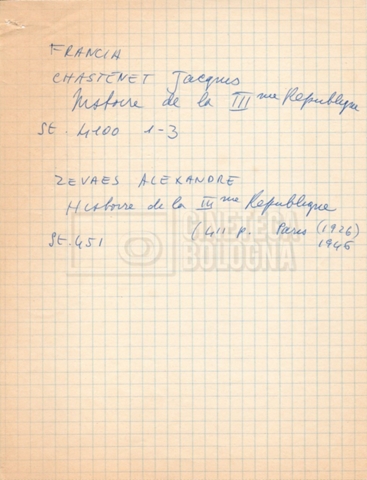 FRANCIA
CHASTENET Jacques
Histoire de la III me Republique
St. 4100 1-3
ZEVAES ALEXANDRE
Histoire de la III me Republique
(411 p. Paris (1926)
St. 451 1946
CINETECA
BOLOGNA